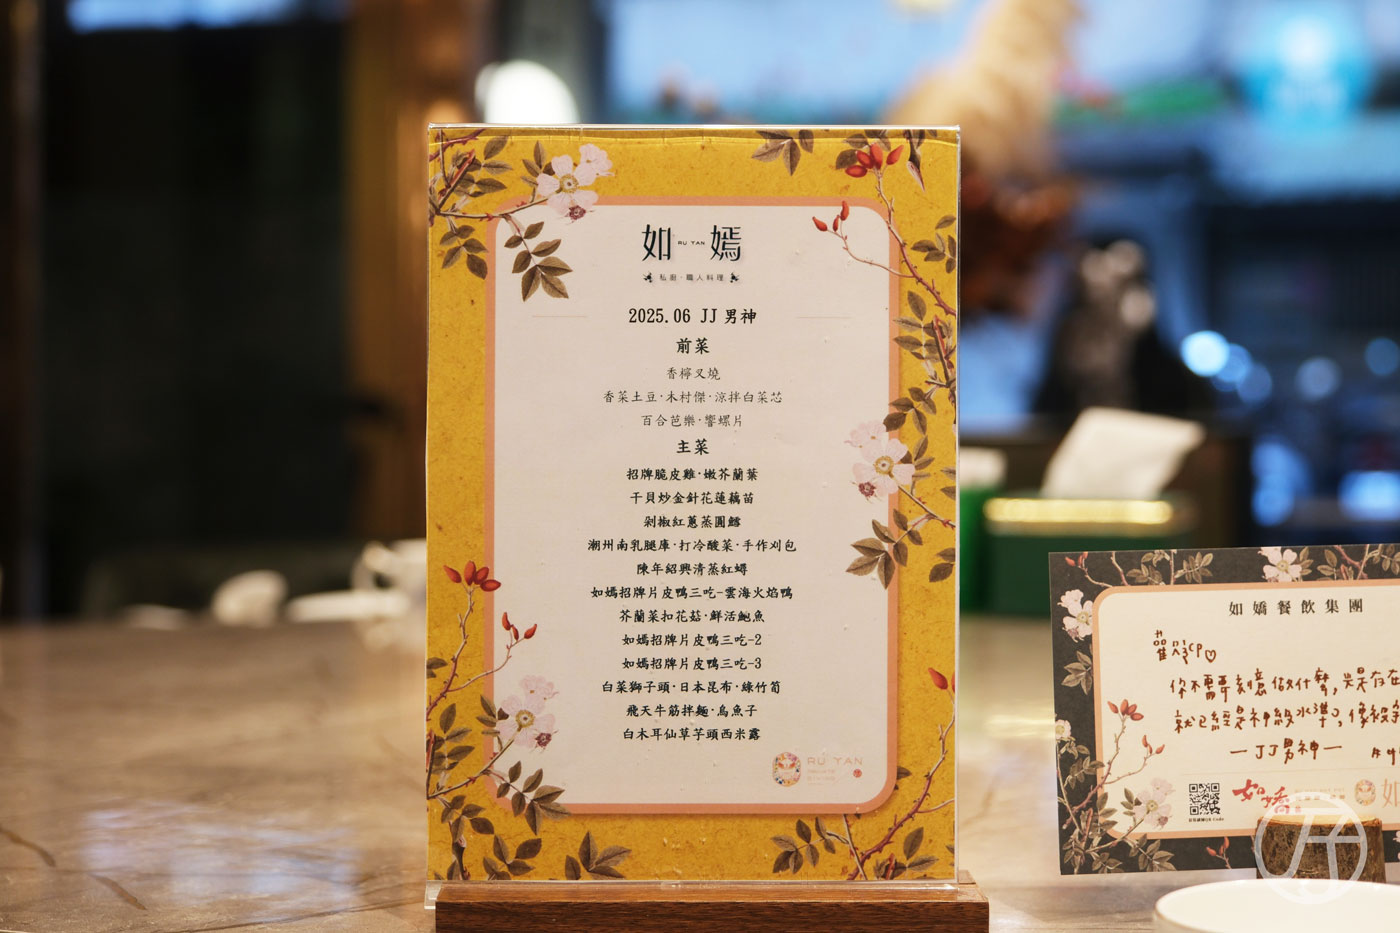 如 RU YAN 嫣
私廚·職人料理
2025.06 JJ 男神
前菜
香檸叉燒
香菜土豆·木村傑·涼拌白菜芯
百合芭樂·響螺片
主菜
招牌脆皮雞·嫩芥蘭葉
干貝炒金針花蓮藕苗
剁椒紅蔥蒸圓鱈
潮州南乳腿庫·打冷酸菜·手作刈包
陳年紹興清蒸紅蟳
如嫣招牌片皮鴨三吃-雲海火焰鴨
芥蘭菜扣花菇·鮮活鮑魚
如嫣招牌片皮鴨三吃-2
如嫣招牌片皮鴨三吃-3
白菜獅子頭·日本昆布·綠竹筍
飛天牛筋拌麵·烏魚子
白木耳仙草芋頭西米露
RU YAN
PRIVATE
DINING
如嬌餐飲集團
你不需要刻意做什麼,光是存在
就已經是神級水準,像被
—JJ男神—
如嬌
如